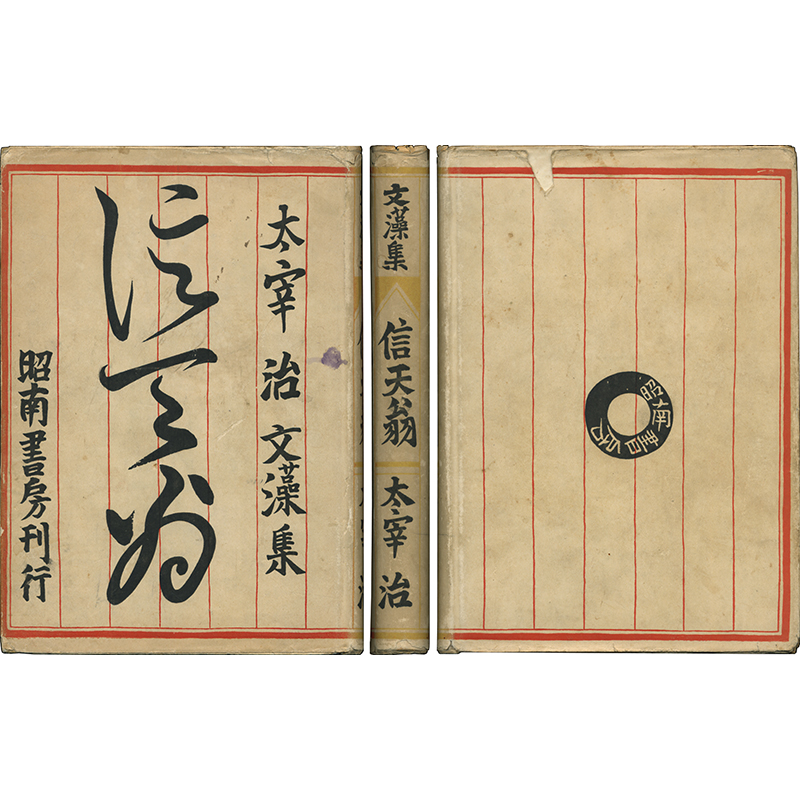 太宰治 文藻集
信天翁
昭南書房刊行
文藻集
信天翁
太宰治
昭南書房